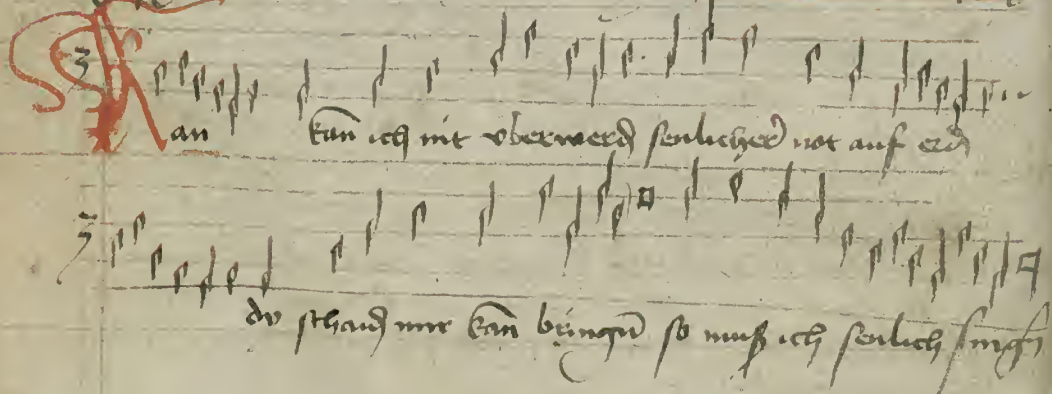 Kan kan̄ ich nit vberwerdn senlicher not auf erdn
dv schaidn mir kan̄ bringn̄ so muß ich senlich singn̄